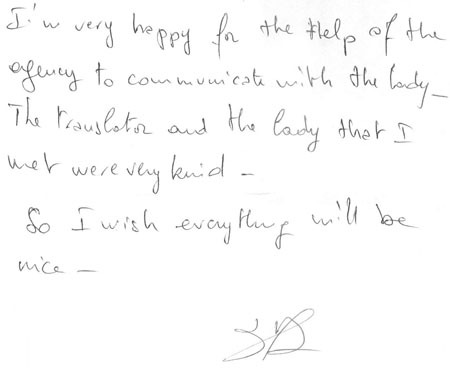 I'm very happy for the Help of the
agency to communicate with the lady_
The translator and the lady that I
met were very knid _
So I wish everything will be
nice _